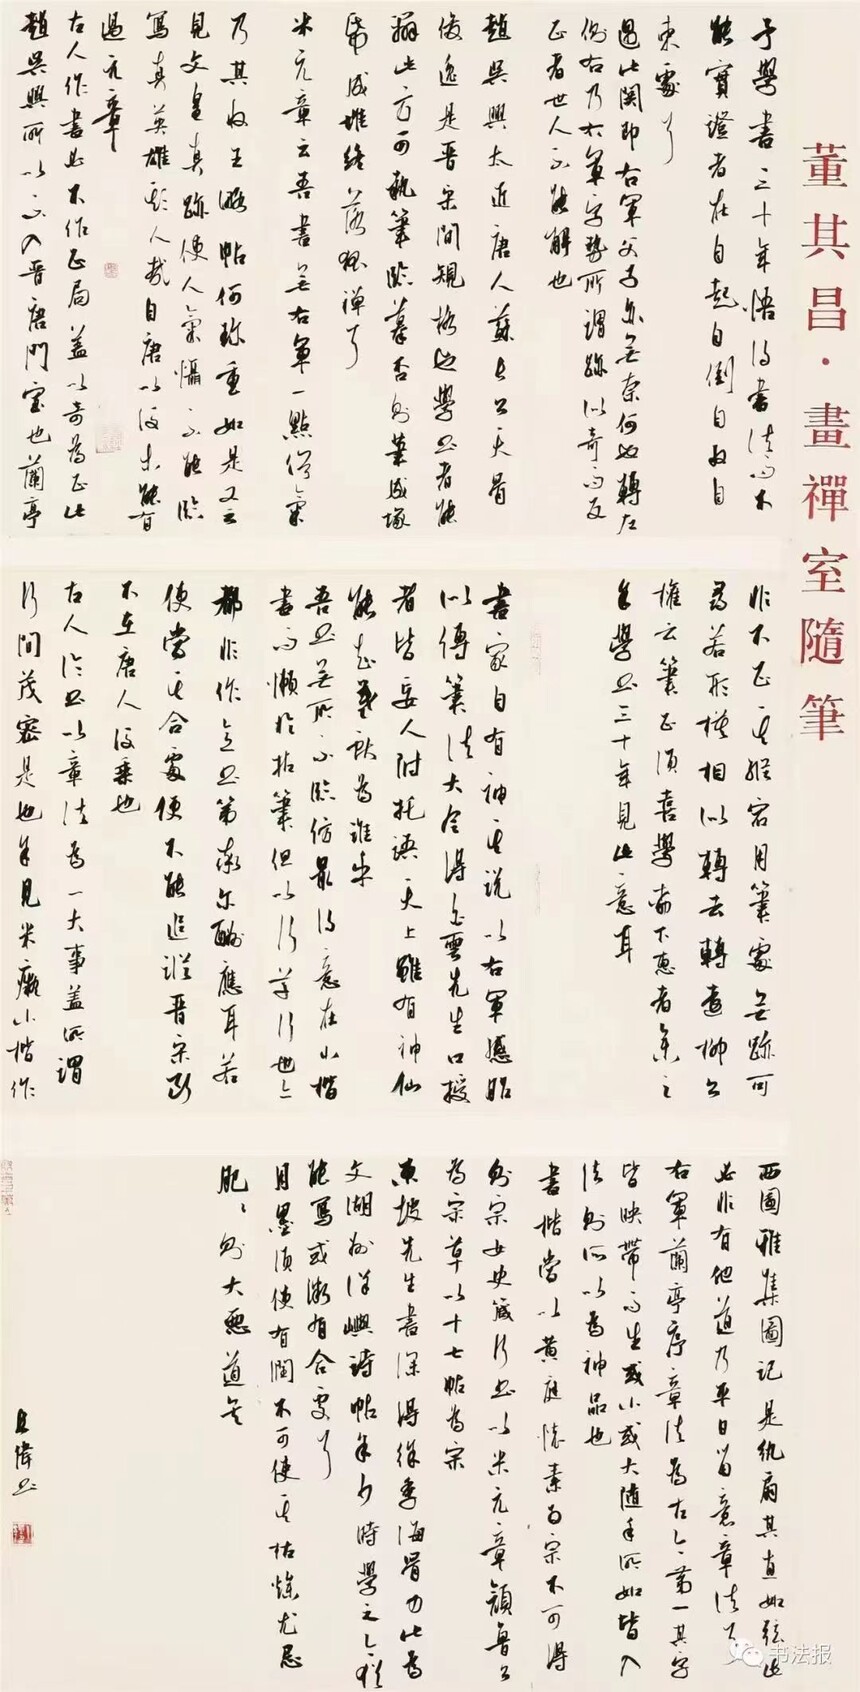 董其昌·畫禪室隨筆
予學書三十年悟得書法而不
能實證者在自起自倒自收自
束處耳
過此關即右軍父子亦無奈何也轉左
側右乃右軍字勢所謂跡似奇而反
正者世人不能解也
趙吳興大近唐人蘇長公天骨
俊逸是晉宋間規格也學書者能
辨此方可執筆臨摹否則筆成塚
紙成堆終落狐禪耳
米元章云吾書無右軍一點俗氣
乃其收王略帖何珍重如是又云
見文皇真跡使人氣懾不能臨
寫真英雄欺人哉自唐以後未能有
過元章
古人作書必不作正局蓋以奇為正此
趙吳興所以不入晉唐門室也蘭亭
非不正其縱宕用筆處無跡可
尋若形模相似轉去轉遠柳公
權云筆正須善學柳下惠者參之
余學書三十年見此意耳
書家自有神其說以右軍感胎
以傳筆法大令得白雲先生口授
者皆妄人附托語天上雖有神仙
能知羲獻為誰乎
吾書無所不臨仿最得意在小楷
書而懶於拈筆但以行草行世亦
都非作意書第率爾酬應耳若
使當其合處便不能追蹤晉宋斷
不在唐人後乘也
古人論書以章法為一大事蓋所謂
行間茂密是也余見米癡小楷作
西園雅集圖記是紈扇其直如弦此
必非有他道乃平日留意章法耳
右軍蘭亭序章法為古今第一其字
皆映帶而生或小或大隨手所如皆入
法則所以為神品也
書楷當以黃庭懷素為宗不可得
則宗女史箴行書以米元章顏魯公
為宗草以十七帖為宗
東坡先生書深得徐季海骨力此為
文湖州洋嶼詩帖余少時學之今猶
能寫或微有合處耳
用墨須使有潤不可使其枯燥尤忌
肥肥則大惡道矣
書法报